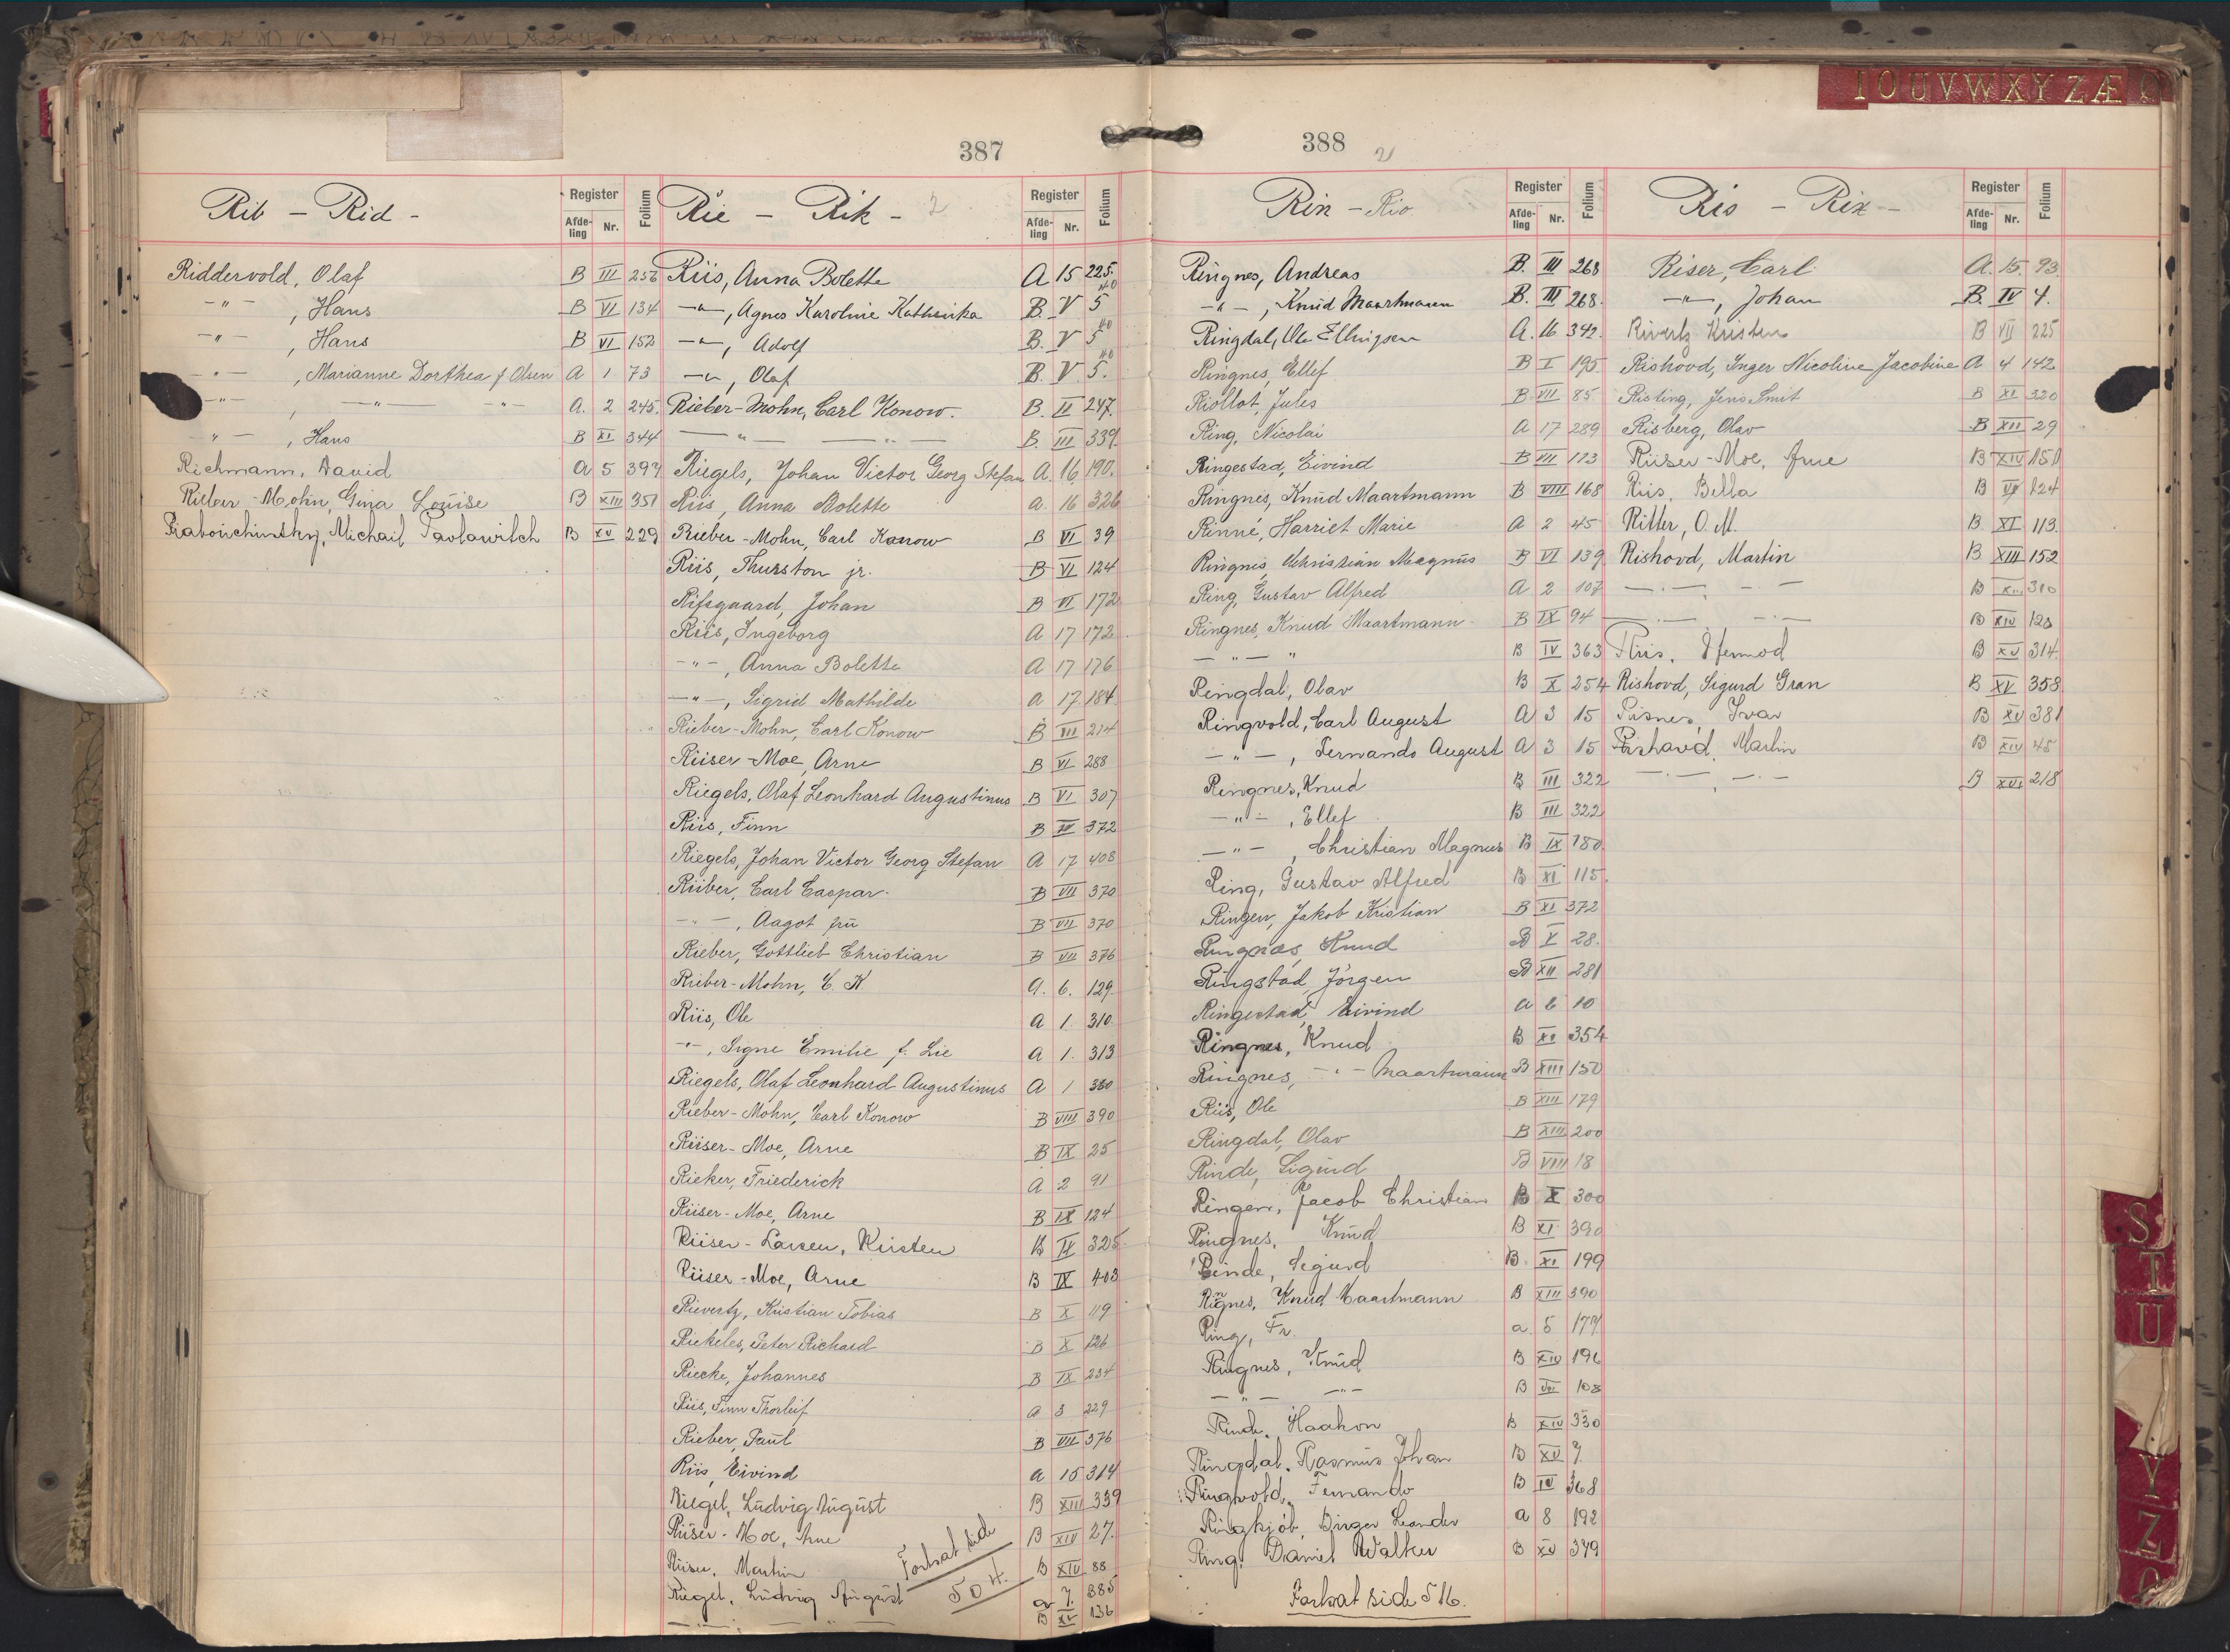 IOUVWXYZÆ
387
Register
Folium
Afde-
ling
Nr.
Rib - Rid -
Riddervold, Olaf B III 256
-"- , Hans B VI 134
-"- , Hans B VI 152
-"- , Marianne Dorthea f. Olsen A 1 73
-"- , -"- -"- A. 2 245.
-"- , Hans B XI 344
Richmann, David A 5 394
Rieber-Mohn, Gina Louise B XIII 351
Michail B XV 229
Rie - Rik - 2
Register
Folium
Afde-
ling
Nr.
Riis, Anna Bolette A 15 225.
-"-, Agnes Karoline Kathinka B. V 5 40
-"-, Adolf B. V 5 40
-"-, Olaf B. V. 5. 40
Rieber-Mohn, Carl Konow. B. II 247.
-"- -"- B. III 339.
Riegels, Johan Victor Georg Stefan A. 16. 190.
Riis, Anna Bolette a. 16 326
Rieber-Mohn, Carl Konow B VI 39
Riis, Thurston jr. B VI 124
Rifsgaard, Johan B VI 172
Riis, Ingeborg A 17 172
-"-, Anna Bolette A 17 176
-"-, Sigrid Mathilde A 17. 184.
Rieber-Mohn, Carl Konow B VII 214
Riiser-Moe, Arne B VI 288
Riegels, Olaf Leonhard Augustinus B VI 307
Riis, Finn B IV 372
Riegels, Johan Victor Georg Stefan A 17 408
Riiber, Carl Caspar. B VII 370
-"-, Aagot frü B VII 370
Rieber, Gottlieb Christian B VII 376
Rieber-Mohn, C. K A. 6. 129.
Riis, Ole A 1. 310
-"-, Signe Emilie f. Lie A 1. 313
Riegels, Olaf Leonhard Augustinus A 1 360
Rieber-Mohn, Carl Konow B VIII 390
Riiser-Moe, Arne B IX 25
Rieker, Friederick A 2 91
Riiser-Moe, Arne B IX 124
Riiser-Larsen, Kirsten B IX 325
Riiser-Moe, Arne B IX 403
Rievertz, Kristian Tobias B X 119
Riekeles, Peter Richard B X 126
Riecke, Johannes B IX 234
Riis, Finn Thorleif A 3 229
Rieber, Paul B VII 376
Riis, Eivind a 15 314
Riegel, Ludvig August B XIII 339
Riiser-Moe, Arne B XIV 27.
Riiser, Martin B XIV 88
Riegel, Ludvig August a 7. 385
-"- -"- B XV 136
Fortsat side
504.
388
2
Register
Folium
Afde-
ling
Nr.
Rin - Rio
Ringnes, Andreas B. III 268
-"-, Knud Maartmann B. III 268.
Ringdal, Ole Ellingsen A. 16 342.
Ringnes, Ellef B I 195
Riollot, Jules B VII 85
Ring, Nicolai A 17 289
Ringestad, Eivind B VII 113
Ringnes, Knud Maartmann B VIII 168
Rinné, Harriet Marie A 2 45
Ringnes, Christian Magnus B VI 139
Ring, Gustav Alfred A 2 107
Ringnes, Knud Maartmann B IX 94
-"- " B IV 363
Ringdal, Olav B X 254
Ringvold, Carl August A 3 15
-"-, Fernando August A 3 15
Ringnes, Knud B III 322
-"-, Ellef B III 322
-"-, Christian Magnus B IX 180
Ring, Gustav Alfred B XI 115
Ringen, Jakob Kristian B XI 372
Ringnæs, Knud B V 28.
Ringstad, Jörgen B XII 281
Ringestad, Eivind a 6 10
Ringnes, Knud B XI 354
Ringnes, -"- Maartmann B XIII 150
Riis, Ole B XIII 179
Ringdal, Olav B XIII 200
Rinde, Sigurd B VIII 18
Ringen, Jacob Christian B X 300
Ringnes, Knud B XI 390
Rinde, Sigurd B. XI 199
Rignes, Knud Maartmann B XIII 390
Ring, Fr. a. 5 177.
Ringnes, Knud B XIV 196
-"- -"- B 108
Rinde, Haakon B XIV 330
Ringdal, Rasmus Johan B XV 7.
Ringvold, Fernando B IV 368
Ringkjöb, Birger Leander a 8 192
Ring, Daniel Walter B XV 379
Fortsat side 516.
Ris - Rix -
Register
Folium
Afde-
ling
Nr.
Riser, Carl A. 15. 93.
-"-, Johan B. IV 4.
Rivertz Kristen B VII 225
Rishovd, Inger Nicoline Jacobine A 4 142
Risting, Jens Smit B XI 320
Risberg, Olav B XII 29
Riiser-Moe, Arne B XIV 150
Riis, Bella B VI 124
Ritter, O. M. B XI 113.
Rishovd, Martin B XIII 152
-"- - B XIII 310
-"- -"- B XIV 123
Riis, B XV 314
Rishovd, Sigurd Gran B XV 358
Risnes, Ivar B XV 381
Rishovd, Martin B XIV 45
-"-, -"- B XVI 218
S
T
U
Y
Z